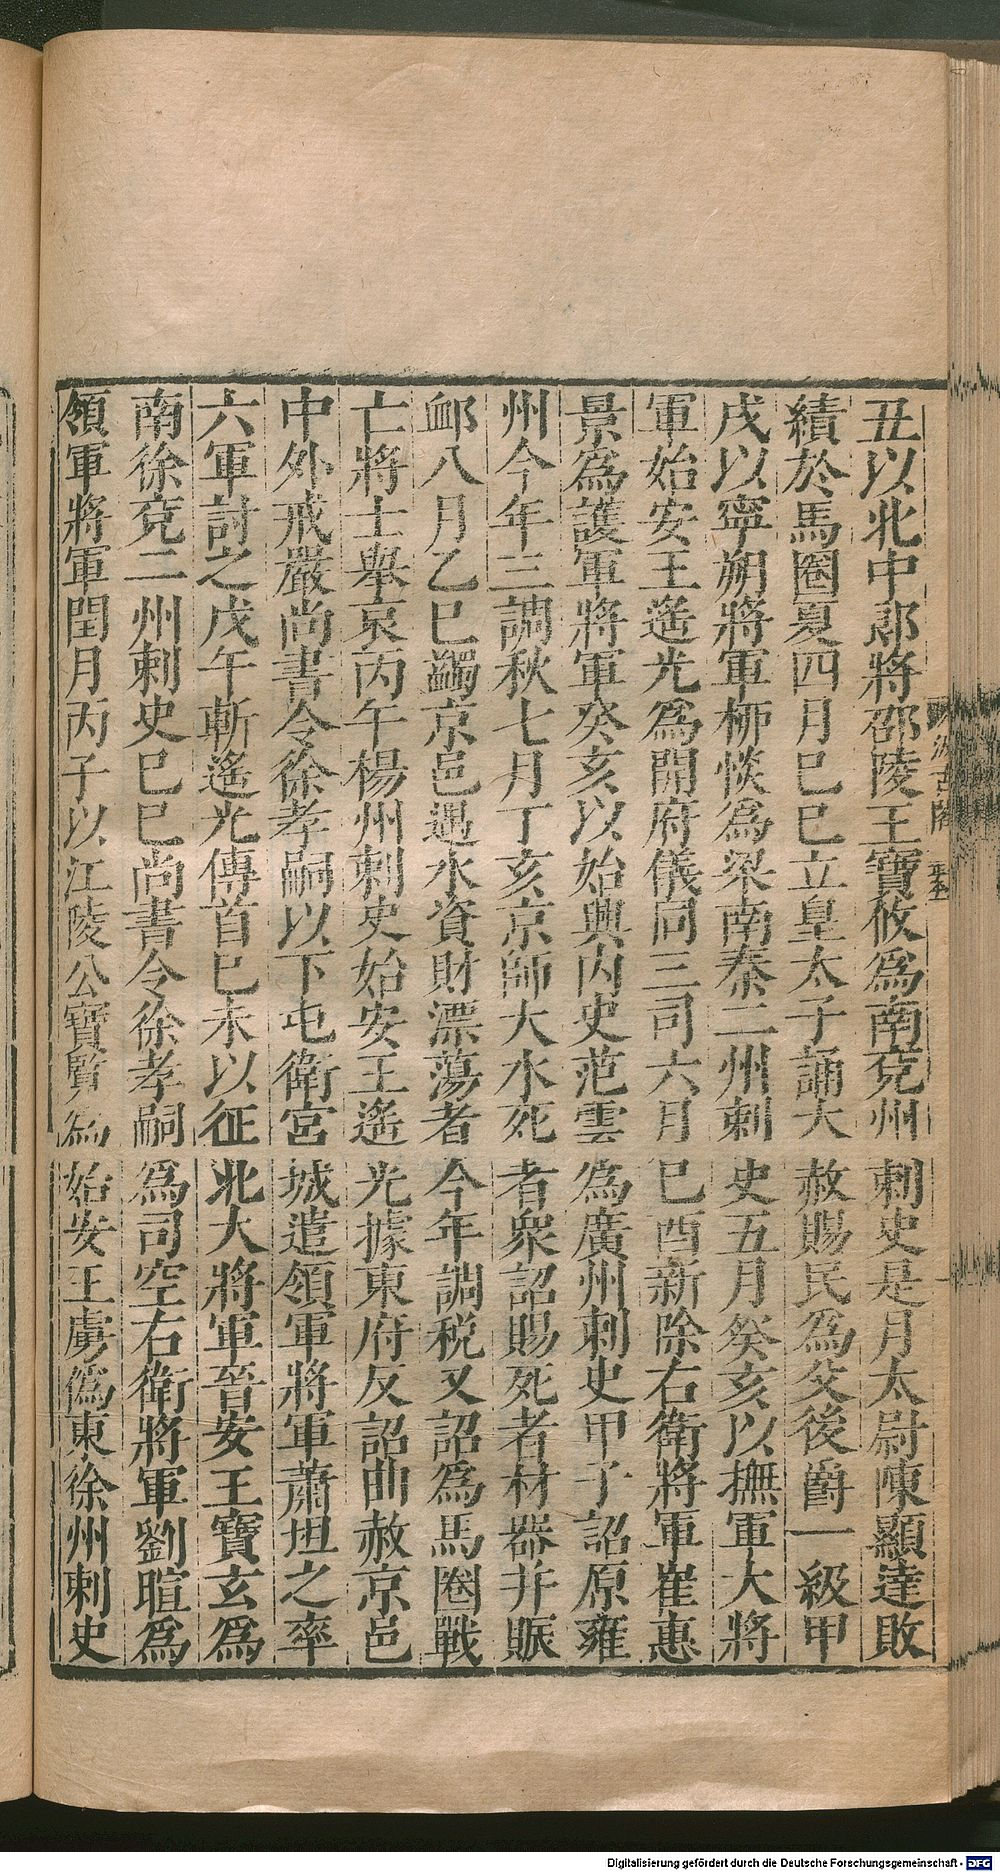 丑以北中郎將邵陵王寶攸爲南兗州刺史是月太尉陳顯達敗
績於馬圈夏四月巳巳立皇太子誦大赦賜民爲父後爵一級甲
戌以寧朔將軍柳惔爲梁南秦二州刺史五月癸亥以撫軍大將
軍始安王遙光爲開府儀同三司六月巳酉新除右衛將軍崔惠
景爲護軍將軍癸亥以始興內史范雲爲廣州刺史甲子詔原雍
州今年三調秋七月丁亥京師大水死者衆詔賜死者材器并賑
卹八月乙巳蠲京邑遇水資財漂蕩者今年調稅又詔爲馬圈戰
亡將士舉哀丙午楊州刺史始安王遙光據東府反詔曲赦京邑
中外戒嚴尚書令徐孝嗣以下屯衛宮城遣領軍將軍蕭坦之率
六軍討之戊午斬遙光傳首巳未以征北大將軍晉安王寶玄爲
南徐兗二州刺史巳巳尚書令徐孝嗣爲司空右衛將軍劉暄爲
領軍將軍閏月丙子以江陵公寶覽爲始安王虜僞東徐州刺史
Digitalisierung gefördert durch die Deutsche Forschungsgemeinschaft - DFG